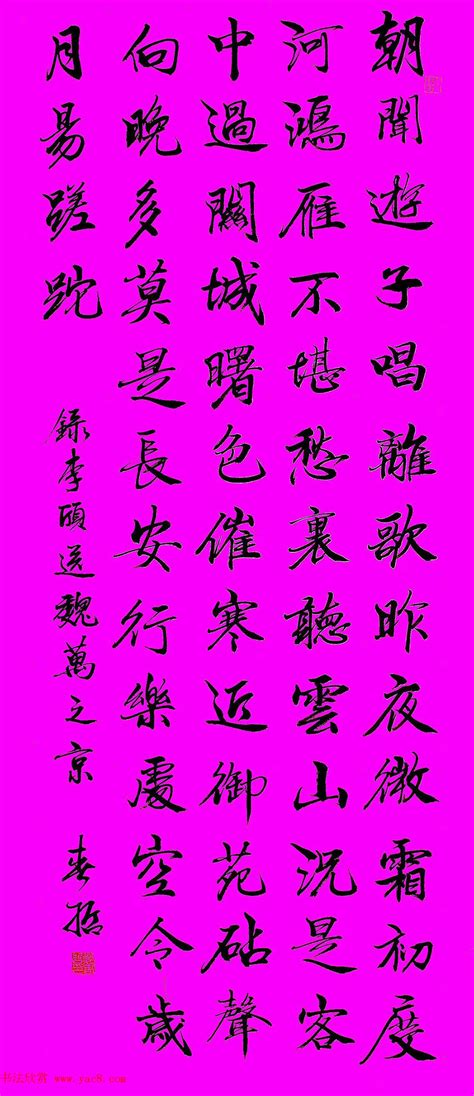 朝聞遊子唱離歌昨夜微霜初度
河鴻雁不堪愁裏聽雲山況是客
中過關城曙色催寒近御苑砧聲
向晚多莫是長安行樂處空令歲
月易蹉跎
錄李頎送魏萬之京 春哲
书法欣赏 www.yac8.com